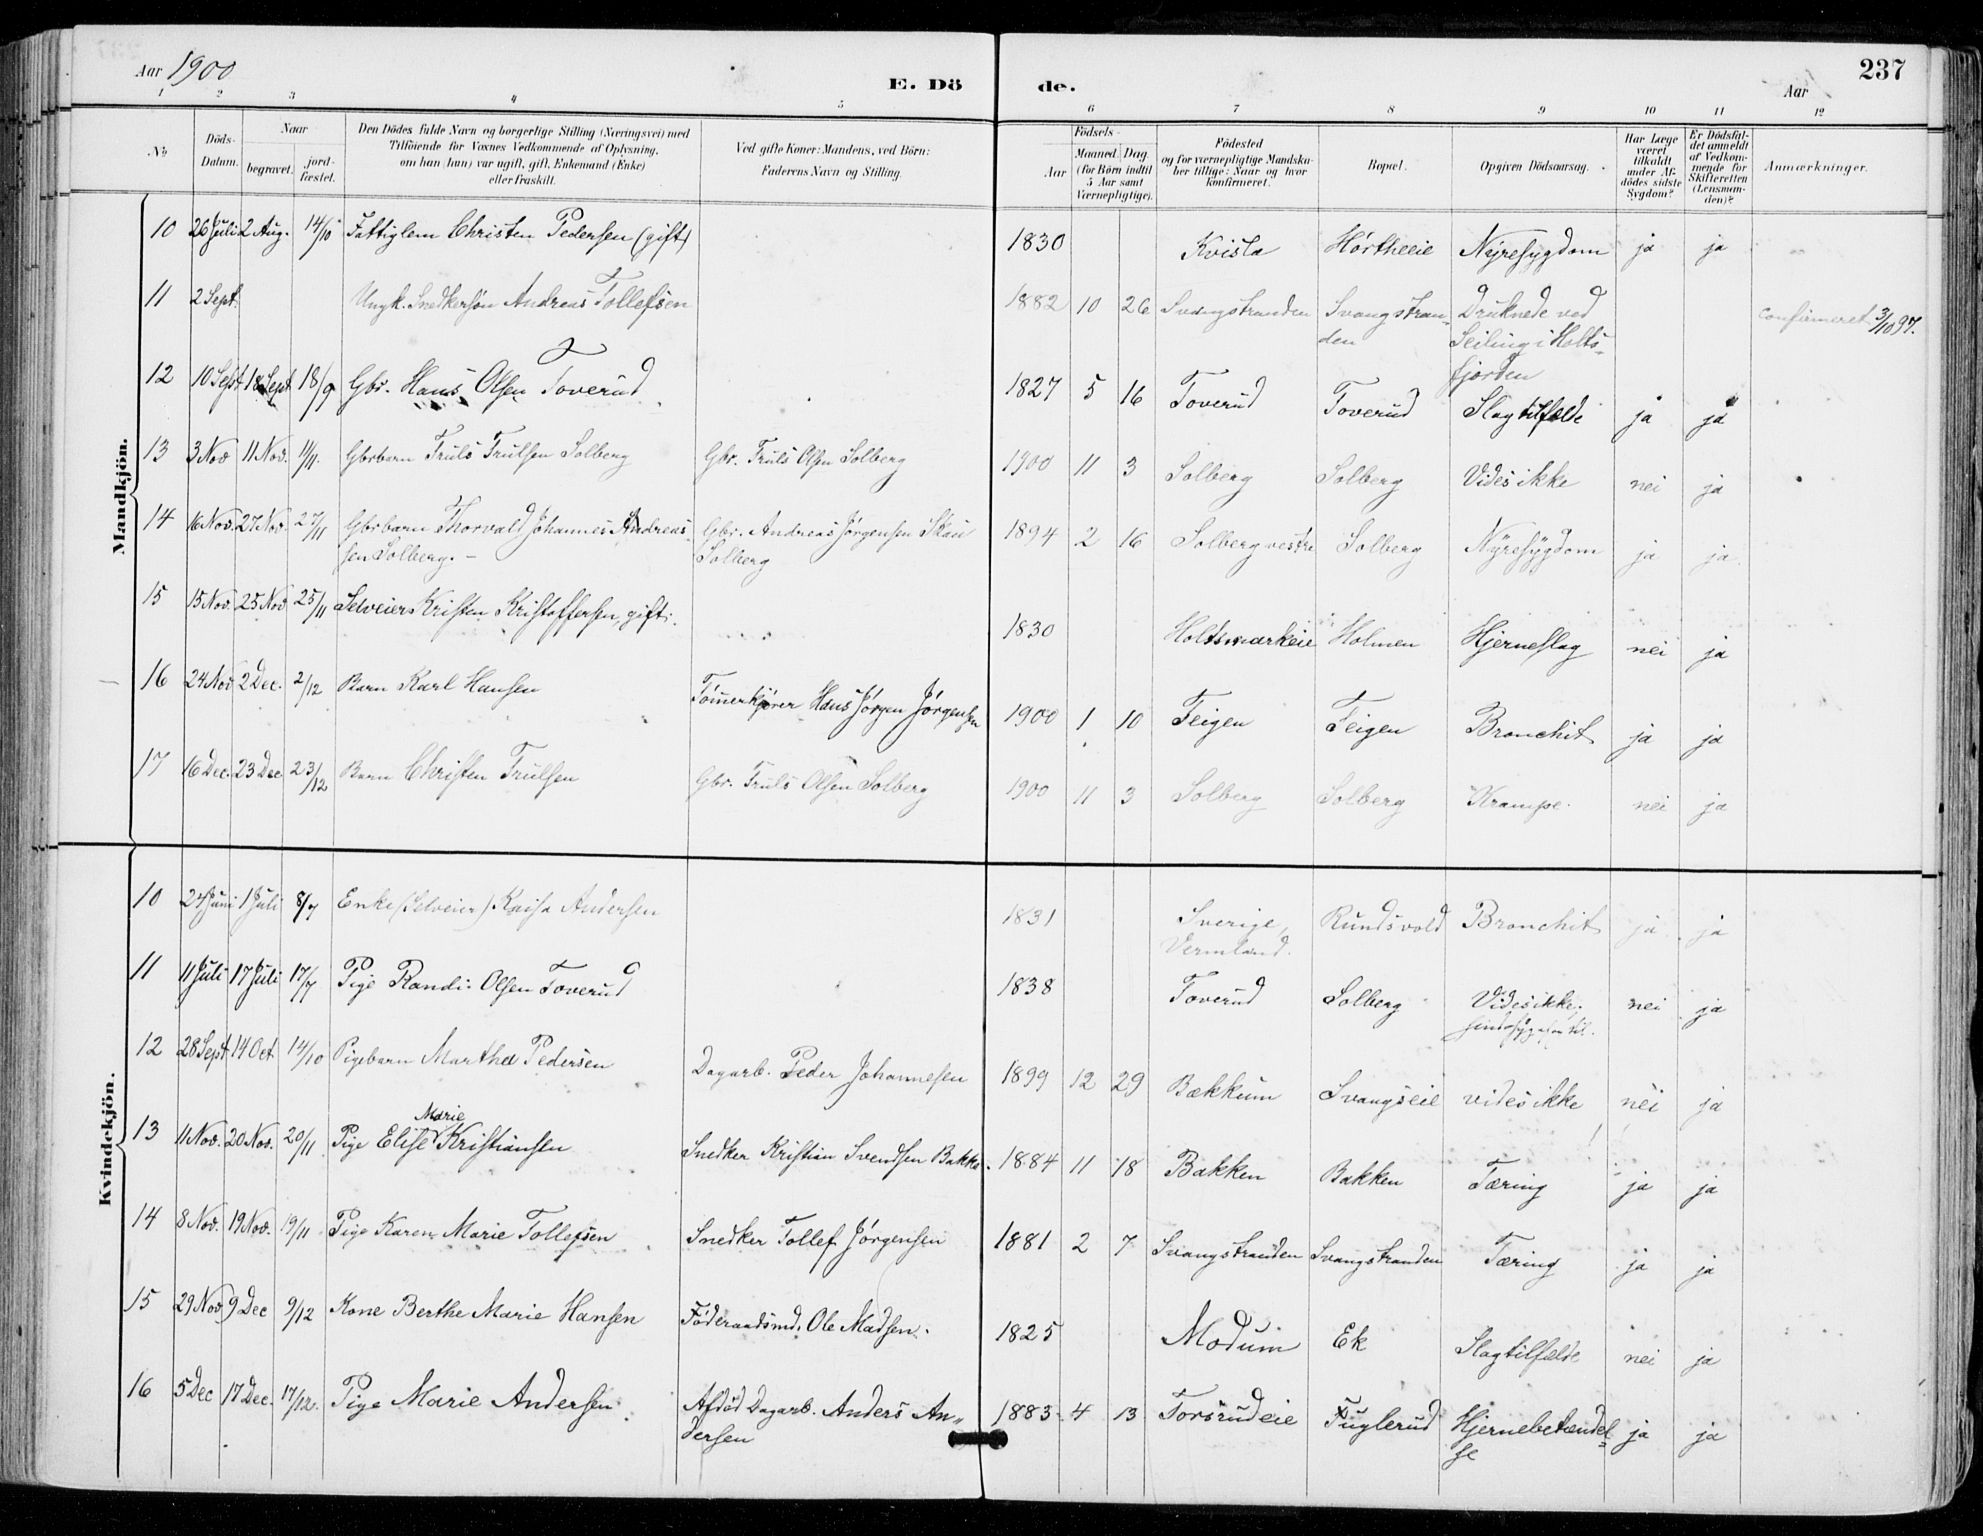 Aar 1900
E. Dö
de.
Aar
237
1 2 3 4 5 6 7 8 9 10 11 12
No
Döds-
Datum.
Naar
begravet.
jord-
fæstet.
Den Dödes fulde Navn og borgerlige Stilling (Næringsvei) med
Tilföiende for Voxnes Vedkommende af Oplysning,
om han (hun) var ugift, gift, Enkemand (Enke)
eller fraskilt.
Ved gifte Koner: Mandens, ved Börn:
Faderens Navn og Stilling.
Födsels-
Aar
Maaned. Dag
(for Börn indtil
5 Aar samt
Værnepligtige).
Födested
og for værnepligtige Mandska-
ber tillige: Naar og hvor
konfirmeret.
Bopæl.
Opgiven Dödsaarsag.
Har Læge
været
tilkaldt
under Af-
dödes sidste
Sygdom?
Er Dödsfal-
det anmeldt
af Vedkom-
mende for
Skifteretten
(Lensman-
den)?
Anmærkninger.
Mandkjön.
10 26 Juli 2 Aug. 14/10 Fattiglem Christen Pedersen (gift) 1830 Kvisla Hørtheeie Nyresygdom ja ja
11 2 Sept. Ungk. Snedkersøn Andreas Tollefsen 1882 10 26 Svangstranden Svangstran-
den Druknede ved
Seiling i Holts-
fjorden confirmeret 3/10 97.
12 10 Sept 18 Sept 18/9 Gbr. Hans Olsen Toverud 1827 5 16 Toverud Toverud Slagtilfælde ja ja
13 3 Nov 11 Nov. 11/11. Gbrbarn Truls Trulsen Solberg Gbr. Truls Olsen Solberg 1900 11 3 Solberg Solberg Vides ikke nei ja
14 16 Nov. 27 Nov. 27/11 Gbrbarn Thorvald Johannes Andreas-
sen Solberg. - Gbr. Andreas Jørgensen Skau
Solberg 1894 2 16 Solberg vestre Solberg Nyresygdom ja ja
15 15 Nov. 25 Nov 25/11 Selveier Kristen Kristoffersen, gift. 1830 Holtsmarkeie Holmen Hjerneslag nei ja
16 24 Nov 2 Dec. 2/12 Barn Karl Hansen Tømmerkjører Hans Jørgen Jørgensen 1900 1 10 Teigen Teigen Bronchit ja ja
17 16 Dec. 23 Dec 23/12 Barn Christen Trulsen Gbr. Truls Olsen Solberg 1900 11 3 Solberg Solberg Krampe. nei ja
Kvindekjön.
10 24 Juni 1 Juli 8/7 Enke (Selveier) Kaisa Andersen 1831 Sverige,
Vermland. Rundsvold Bronchit ja ja
11 11 Juli 17 Juli 17/7 Pige Randi Olsen Toverud 1838 Toverud Solberg Vides ikke; nei ja
12 28 Sept 14 Oct. 14/10 Pigebarn Marthea Pedersen Dagarb. Peder Johannesen 1899 12 29 Bækkum Svangseie vides ikke nei ja
13 11 Nov. 20 Nov. 20/11 Pige Elise Marie Kristiansen Snedker Kristian Svendsen Bakke 1884 11 18 Bakken Bakken Tæring ja ja
14 8 Nov. 19 Nov. 19/11 Pige Karen Marie Tollefsen Snedker Tollef Jørgensen 1881 2 7 Svangstranden Svangstranden Tæring ja ja
15 29 Nov 9 Dec 9/12 Kone Berthe Marie Hansen Føderaadsmd. Ole Madsen. 1825 Modum Ek Slagtilfælde nei ja
16 5 Dec 17 Dec. 17/12. Pige Marie Andersen Afdød Dagarb. Anders An-
dersen 1883 4 13 Torsrudeie Fuglerud Hjernebetændel-
se ja ja